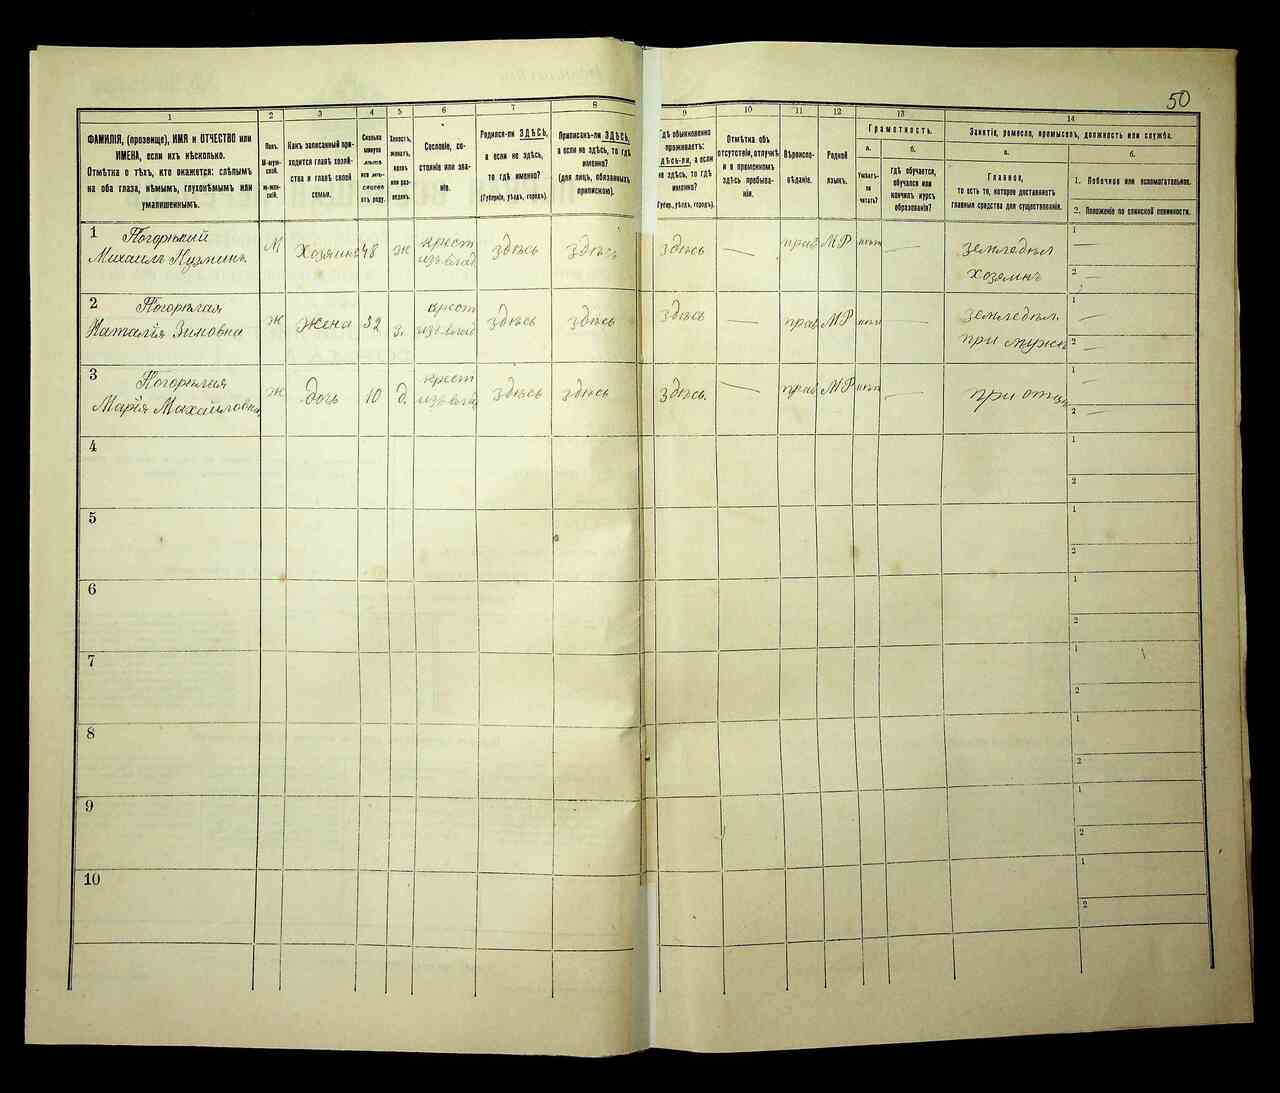 50
1
2
3
4
5
6
7
8
9
10
11
12
13
14
ФАМИЛІЯ, (прозвище), ИМЯ и ОТЧЕСТВО или
ИМЕНА, если ихъ нѣсколько.
Отмѣтка о тѣхъ, кто окажется: слѣпымъ
на оба глаза, нѣмымъ, глухонѣмымъ или
умалишеннымъ.
Полъ.
М-муж-
ской.
Ж-жен-
скій.
Какъ записанный при-
ходится главѣ хозяй-
ства и главѣ своей
семьи.
Сколько
минуло
лѣтъ
или мѣ-
сяцевъ
отъ роду.
Холостъ,
женатъ,
вдовъ
или раз-
веденъ.
Сословіе, со-
стояніе или зва-
ніе.
Родился-ли ЗДѢСЬ,
а если не здѣсь,
то гдѣ именно?
(Губернія, уѣздъ, городъ).
Приписанъ-ли ЗДѢСЬ,
а если не здѣсь, то гдѣ
именно?
(для лицъ, обязанныхъ
припискою).
Гдѣ обыкновенно
проживаетъ:
здѣсь-ли, а если
не здѣсь, то гдѣ
именно?
(Губер., уѣздъ, городъ).
Отмѣтка объ
отсутствіи, отлучкѣ
и о временномъ
здѣсь пребыва-
ніи.
Вѣроиспо-
вѣданіе.
Родной
языкъ.
Грамотность.
а.
Умѣетъ-
ли
читать?
б.
Гдѣ обучается,
обучался или
кончилъ курсъ
образованія?
Занятіе, ремесло, промыселъ, должность или служба.
а.
Главное,
то есть то, которое доставляетъ
главныя средства для существованія.
б.
1. Побочное или вспомогательное.
2. Положеніе по воинской повинности.
1 Погорѣлий
Михаилъ Кузминъ М Хозяинъ 48 ж крест изъ влад здѣсь здѣсь здѣсь — прав МР нѣтъ — земледѣл хозяинъ 1 — 2 —
2 Погорѣлая
Наталія Зиновна Ж жена 52 з. крест изъ влад здѣсь здѣсь здѣсь — прав МР нѣтъ — земледѣл. при мужѣ 1 — 2 —
3 Погорѣлая
Марія Михайловна Ж дочь 10 д. крест изъ влад здѣсь здѣсь здѣсь. — прав МР нѣтъ — при отцѣ 1 — 2 —
4 1 2
5 1 2
6 1 2
7 1 2
8 1 2
9 1 2
10 1 2